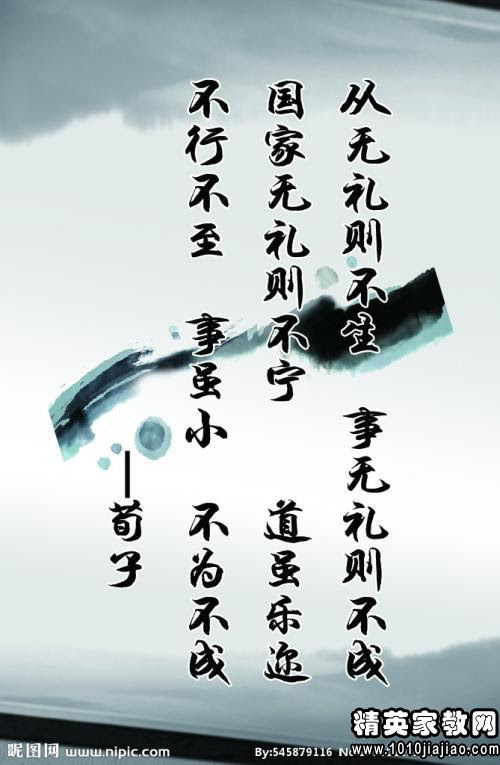 从无礼则不生 事无礼则不成
国家无礼则不宁 道虽乐迩
不行不至 事虽小 不为不成
—荀子
精英家教网
昵图网 www.nipic.com By:545879116 No
www.1010jiajiao.com